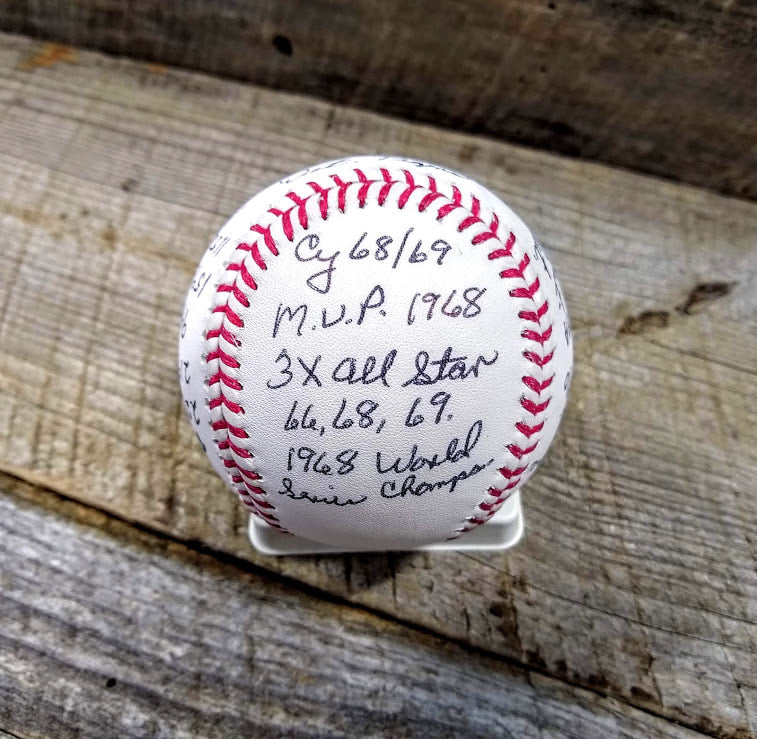 Cy 68/69
M.V.P. 1968
3X all Star
66, 68, 69.
1968 World
Series Champs